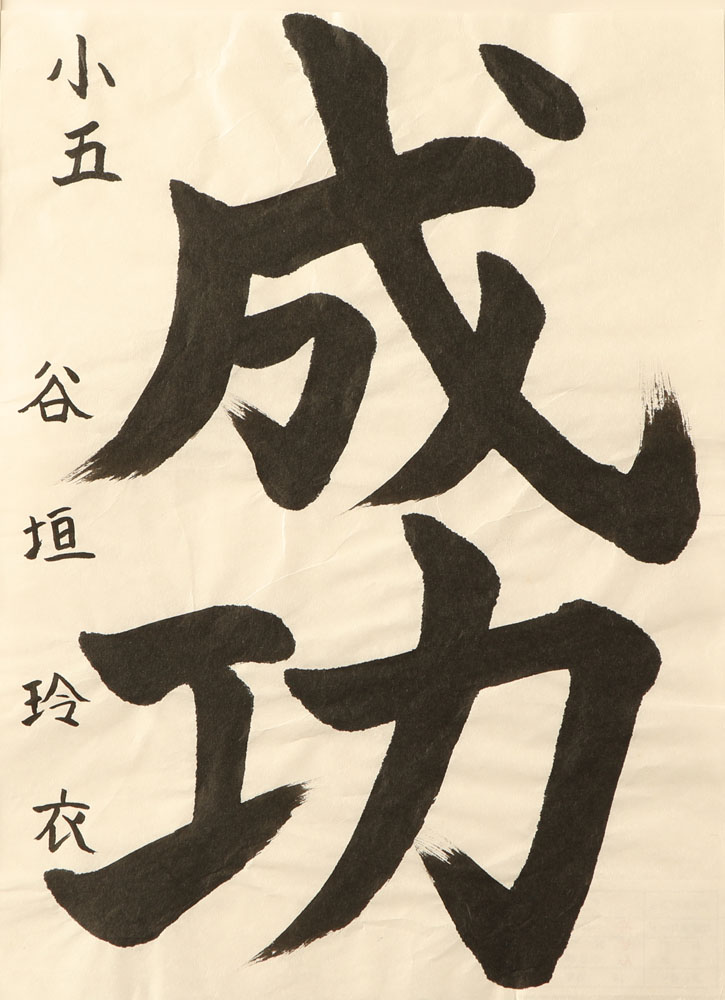 成功
小五 谷垣玲衣